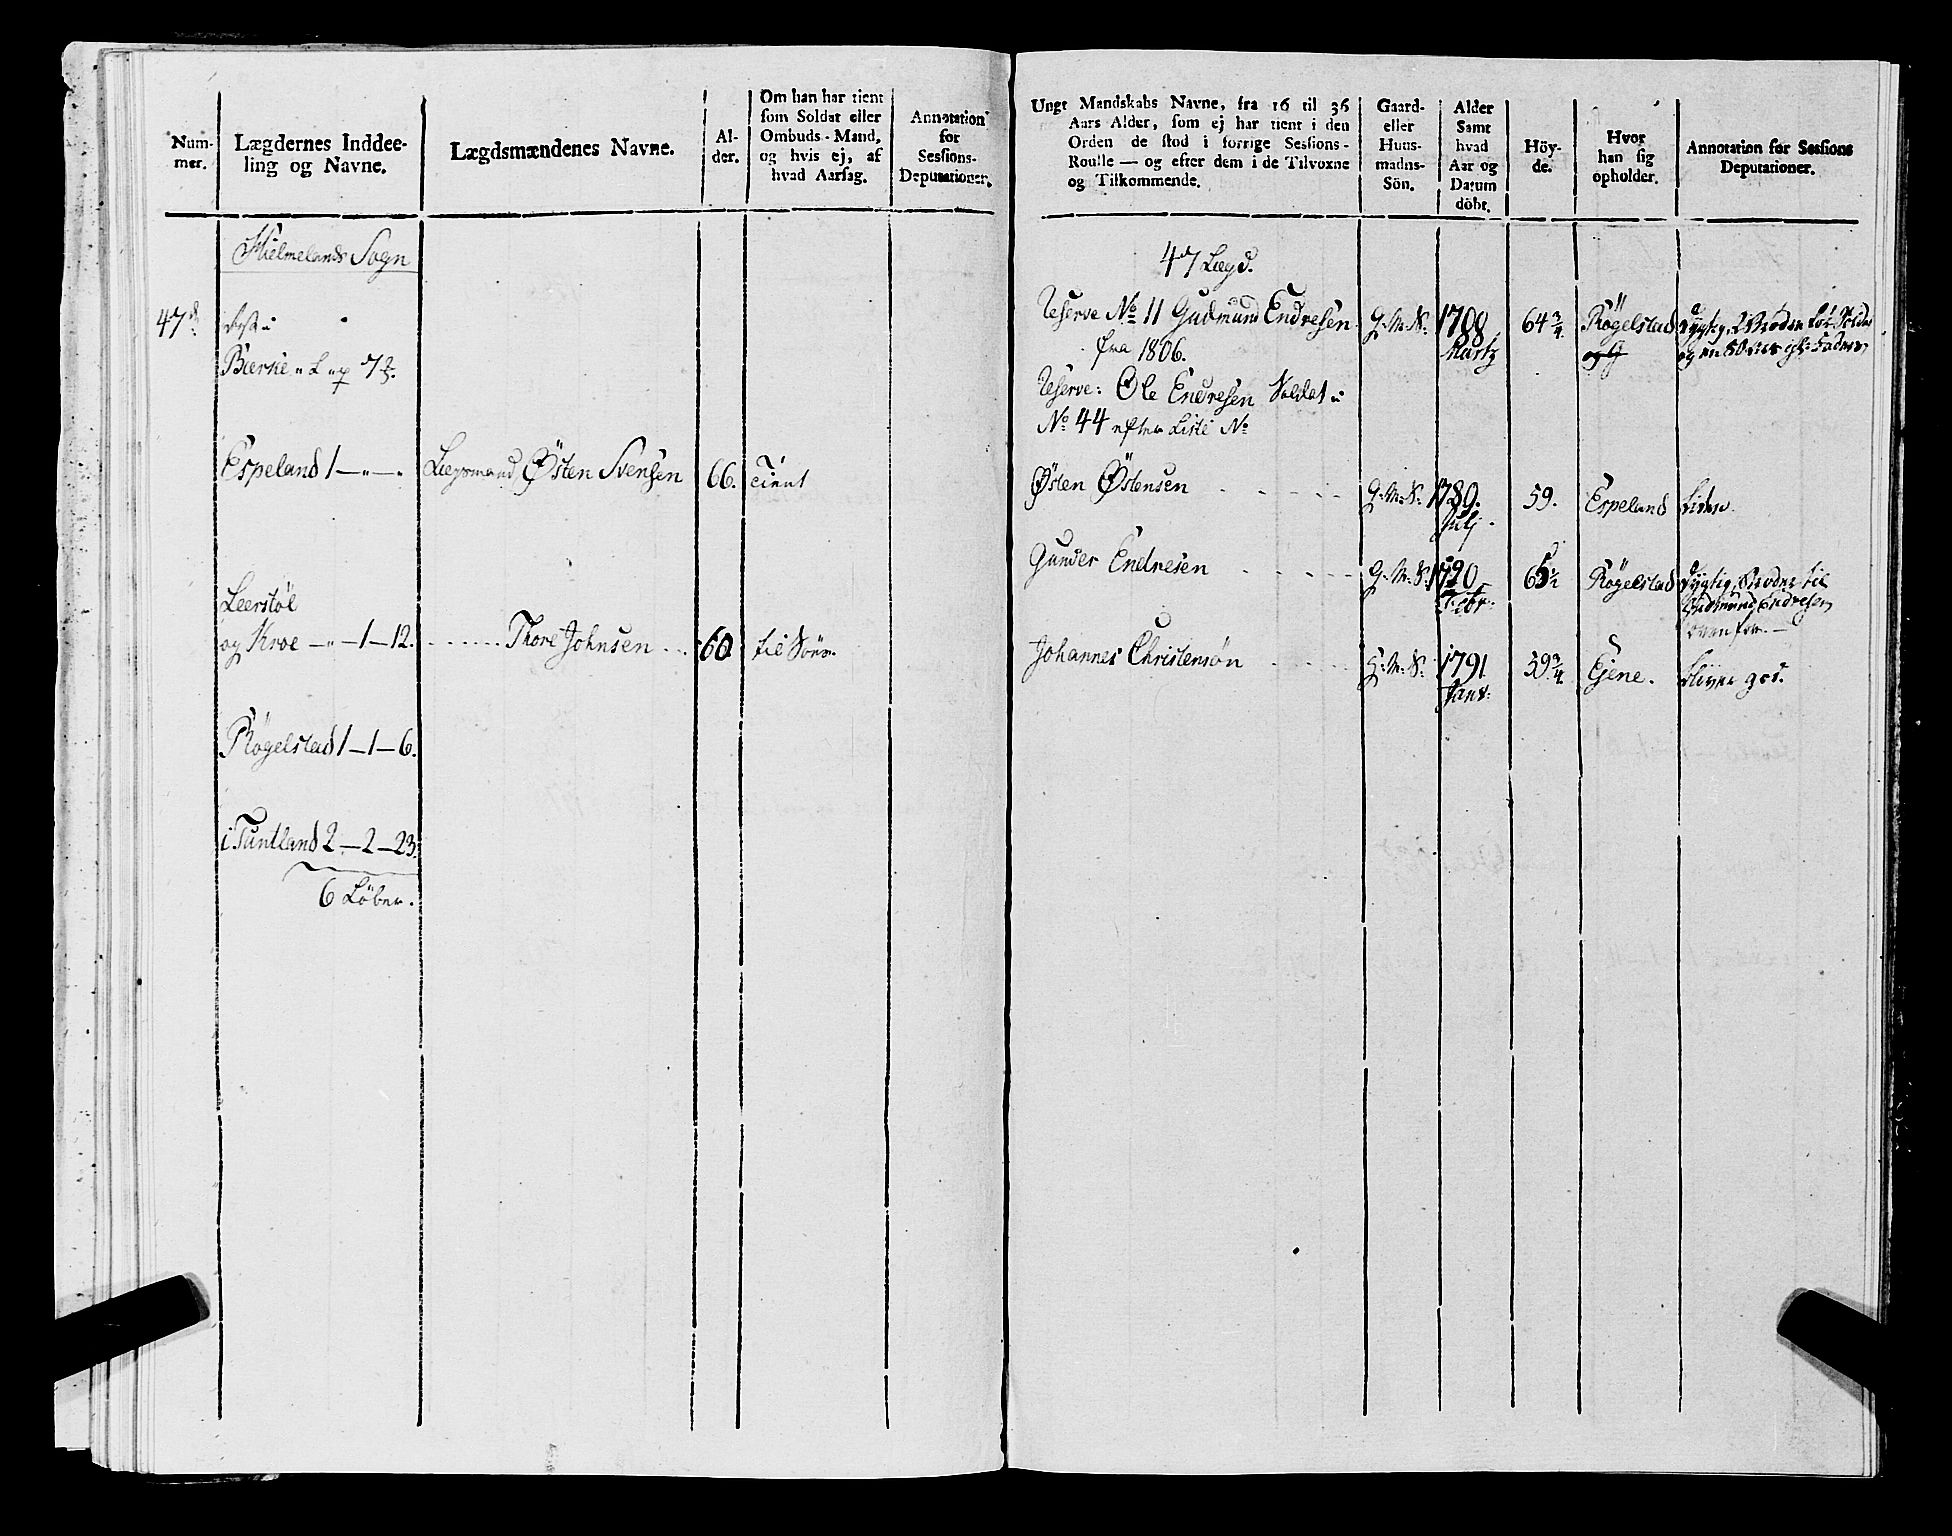 Num-
mer.
Lægdernes Inddee-
ling og Navne.
Lægdsmændenes Navne.
Al-
der.
Om han har tient
som Soldat eller
Ombuds-Mand,
og hvis ej, af
hvad Aarsag.
Annotation
for
Sessions-
Deputationer.
Hielmelands Sogn
47d
Børke
Espeland 1 — " — " Lægsmand Østen Svensen 66. tient
Leerstöl
og Kroe — " — 1 — 12. Thore Johnsen 60 til Söes.
Rögelstad 1 — 1 — 6.
i Tuntland 2 — 2 — 23.
6 Löber.
Ungt Mandskabs Navne, fra 16 til 36
Aars Alder, som ej har tient i den
Orden de stod i forrige Sessions-
Roulle — og efter dem i de Tilvoxne
og Tilkommende.
Gaard-
eller
Huus-
madns-
Sön.
Alder
Samt
hvad
Aar og
Datum
döbt.
Höy-
de.
Hvor
han sig
opholder.
Annotation for Sessions
Deputationer.
47 Lægd.
Reserve No 11 Gudmund Endresen G. M. S. 1788 64 3/4 Rögelstad dygtig,
fra 1806. Martz og
Reserve: Ole Endresen Soldat
No 44 efter Liste No
Østen Östensen G. M. S. 1789. 59. Espeland liden.
Julj
Gunder Endresen G. M. S. 1790 Rögelstad dygtig, Broder til
Febr. Gudmund Endresen
ovenfor.
Johannes Christensøn G. M. S. 1791 59 3/4 Ejene. bliver god.
Janv: